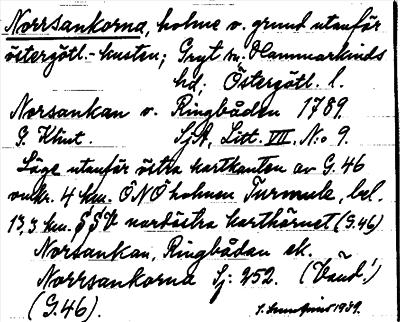 Norrsankorna, holme o. grund utanför
östergötl.-kusten; Gryt sn. Hammarkinds
hd; Östergötl. l.
Norsankan o. Ringbåden 1789.
G. Klint. SjA, Litt. VII, N:o 9.
Läge utanför östra kartkanten av G.46
omkr. 4 km. ÖNÖ holmen Turmule, bel.
13,3 km. SSV nordöstra karthörnet (G.46)
Norsankan, Ringbådan ek.
Norrsankorna Sj: 252. (Vänd!)
(G.46). 1939.